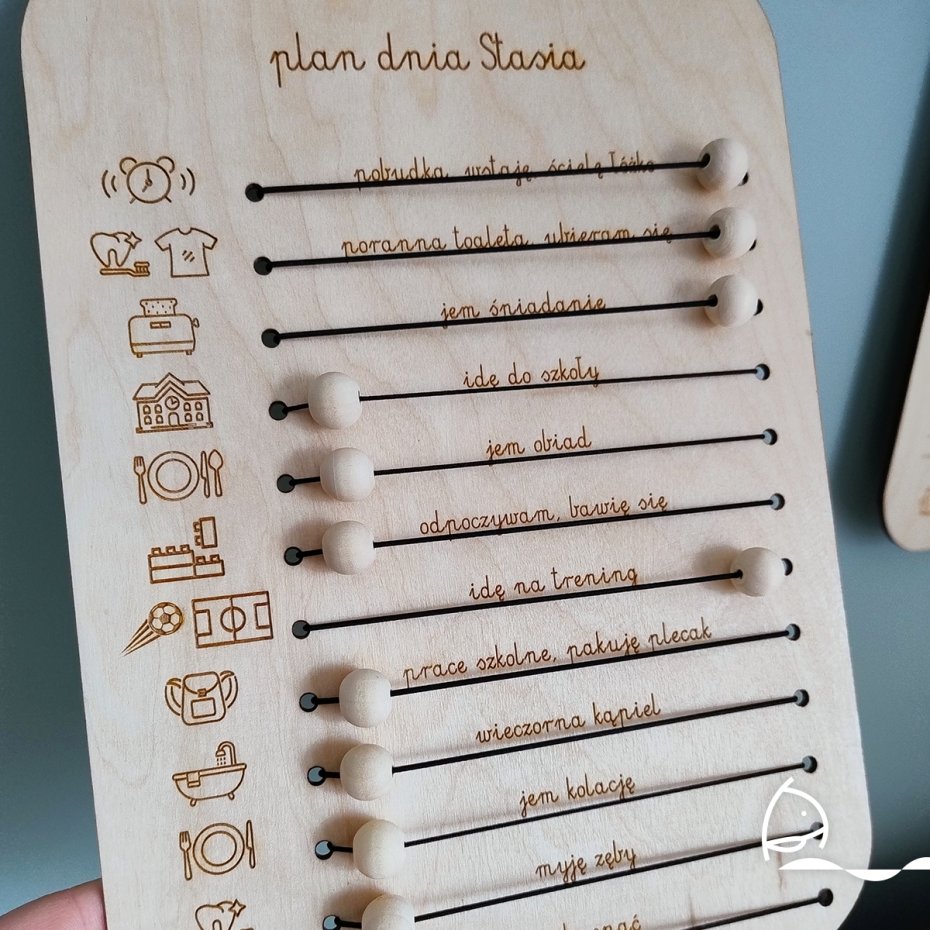 plan dnia Stasia
pobudka, wstaję, ścielę łóżko
poranna toaleta, ubieram się
jem śniadanie
idę do szkoły
jem obiad
odpoczywam, bawię się
idę na trening
prace szkolne, pakuję plecak
wieczorna kąpiel
jem kolację
myję zęby